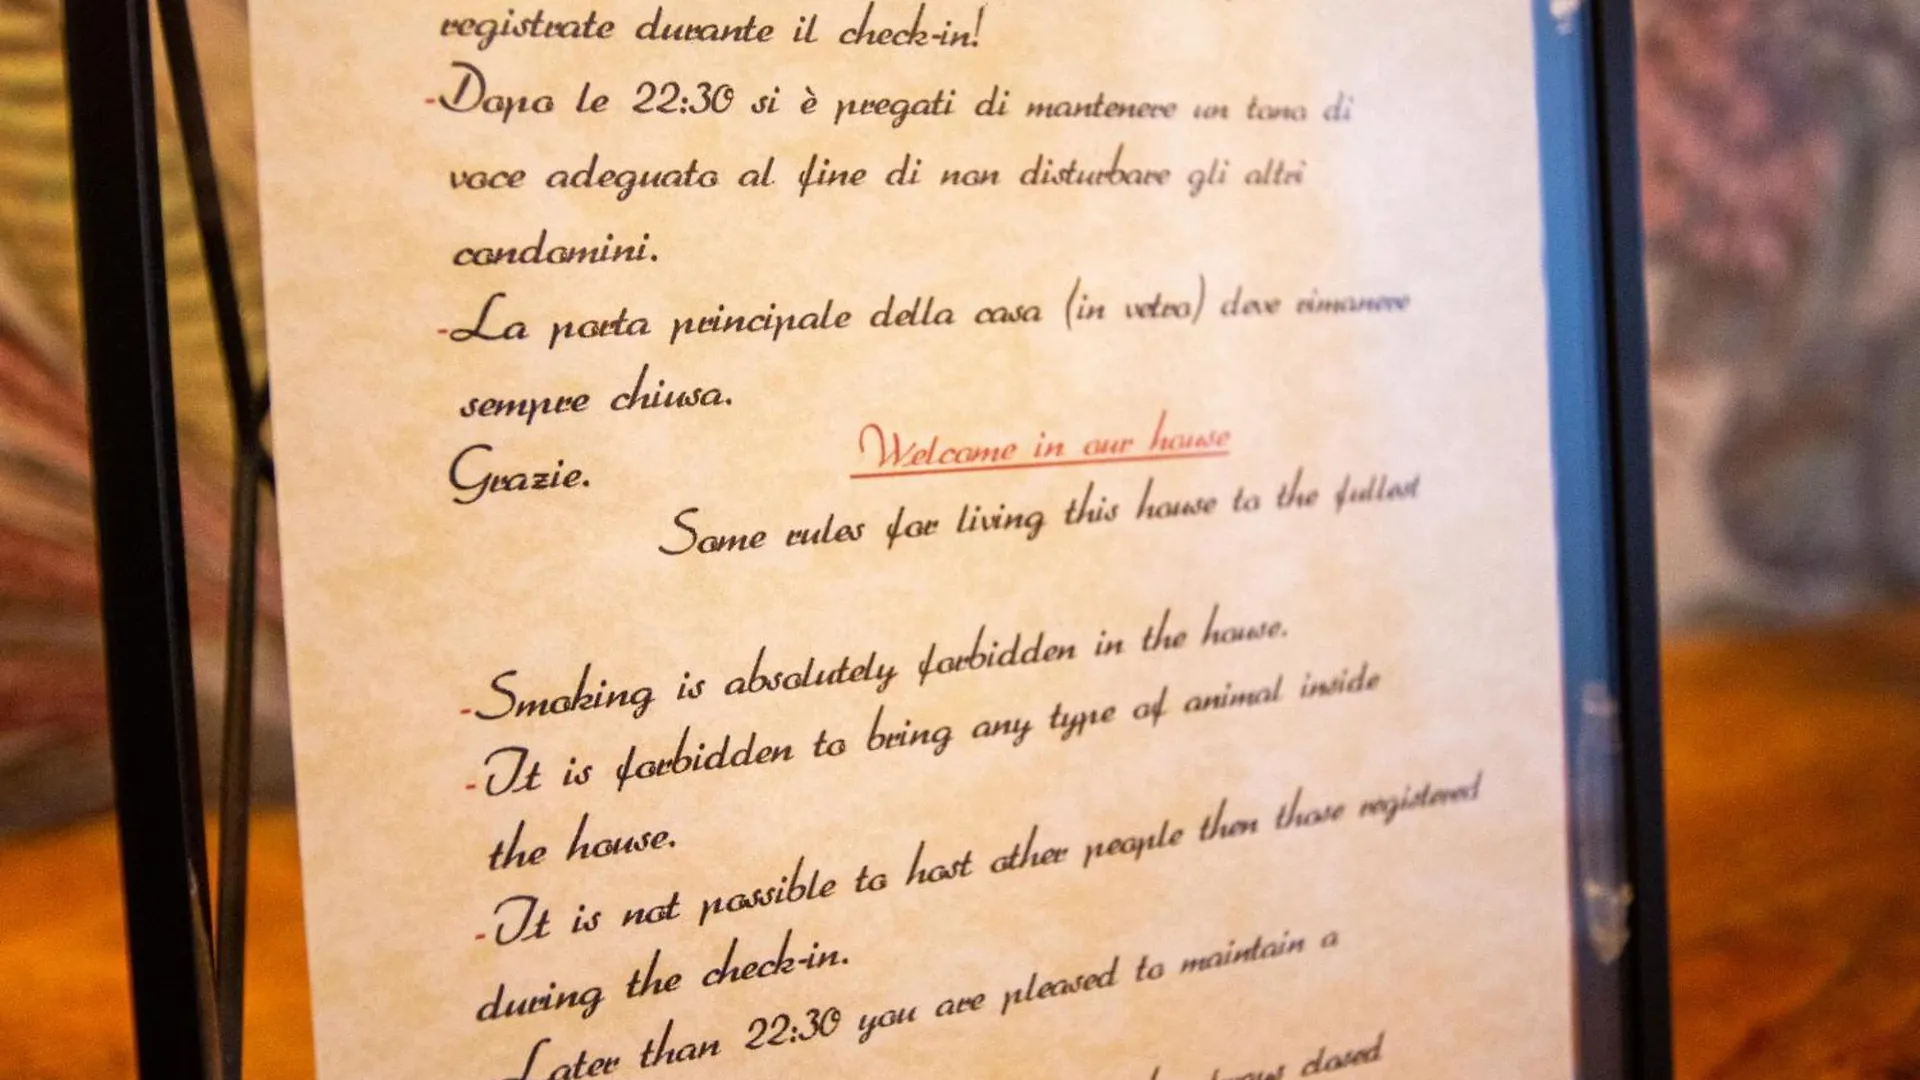 registrate durante il check-in!
-Dopo le 22:30 si è pregati di mantenere un tono di
voce adeguato al fine di non disturbare gli altri
condomini.
-La porta principale della casa (in vetro) deve rimanere
sempre chiusa.
Grazie.
Welcome in our house
Some rules for living this house to the fullest
-Smoking is absolutely forbidden in the house.
-It is forbidden to bring any type of animal inside
the house.
-It is not possible to host other people then those registered
during the check-in.
Later than 22:30 you are pleased to maintain a
closed